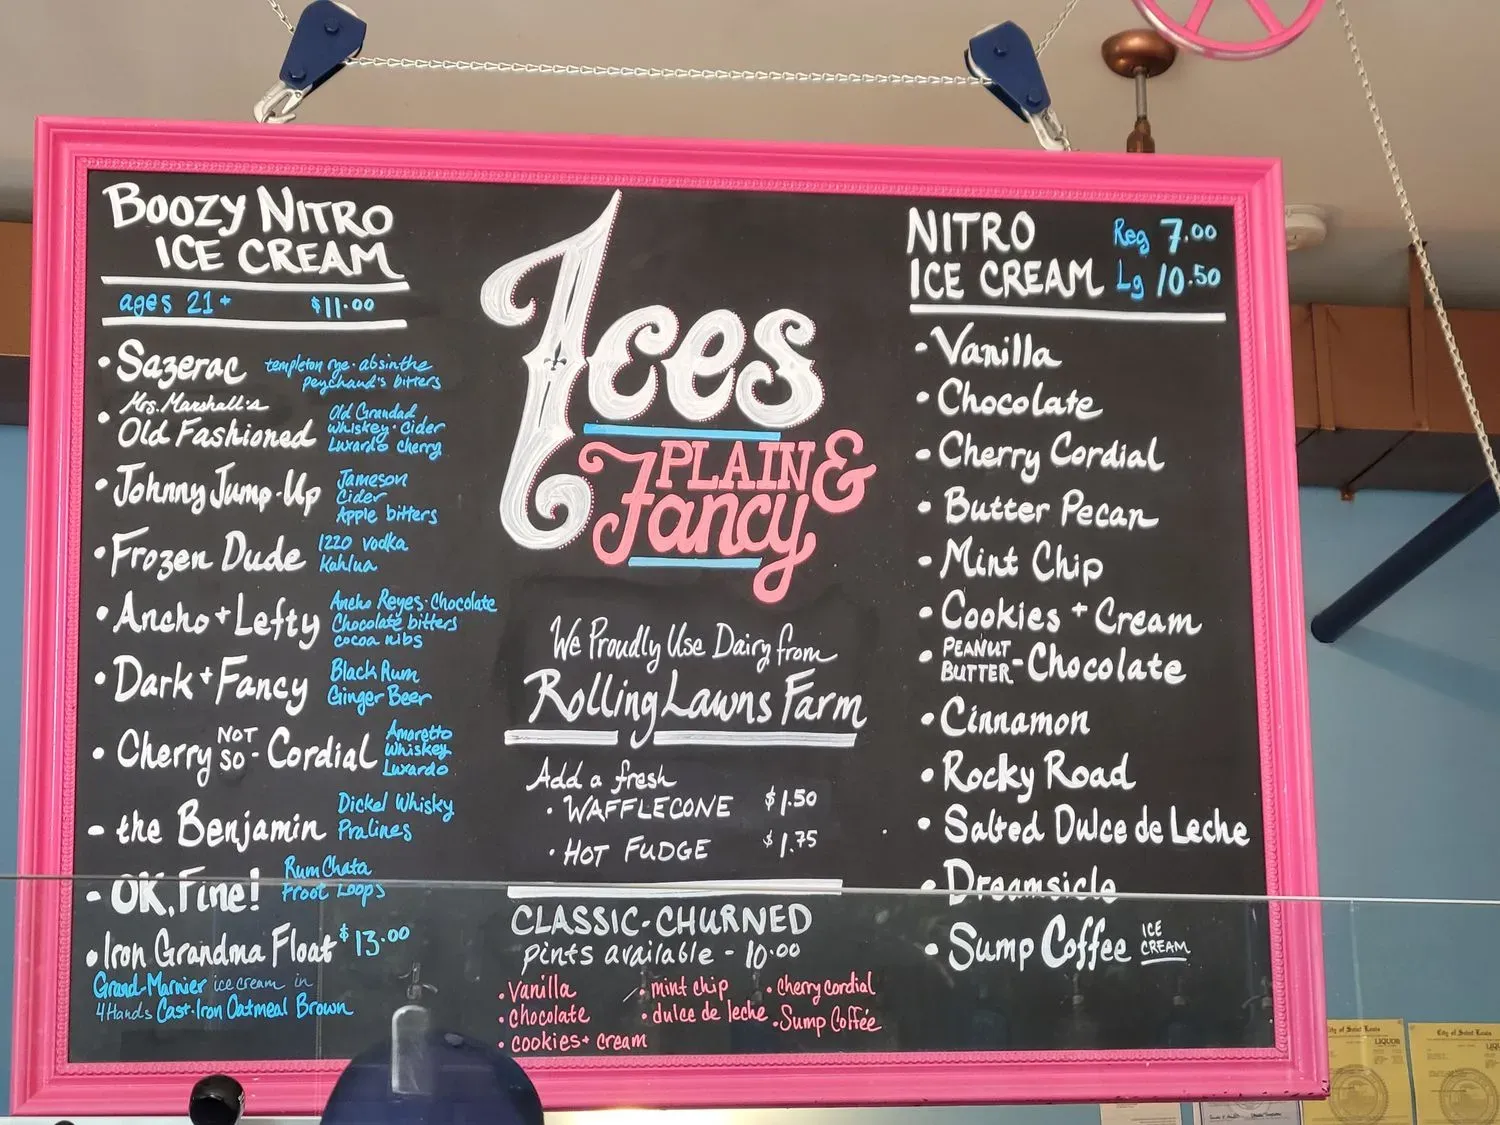 BOOZY NITRO
ICE CREAM
ages 21+ $11.00
• Sazerac templeton rye • absinthe
peychaud's bitters
• Mrs. Marshall's
Old Fashioned Old Grandad
whiskey • Cider
Luxardo cherry
• Johnny Jump-Up Jameson
Cider
Apple bitters
• Frozen Dude 1220 vodka
Kahlua
• Ancho + Lefty Ancho Reyes • Chocolate
Chocolate bitters
cocoa nibs
• Dark + Fancy Black Rum
Ginger Beer
• Cherry NOT SO - Cordial Amaretto
Whiskey
Luxardo
- the Benjamin Dickel Whisky
Pralines
- OK, Fine! RumChata
Froot Loops
• Iron Grandma Float $13.00
Grand Marnier ice cream in
4 Hands Cast-Iron Oatmeal Brown
Ices
PLAIN &
Fancy
We Proudly Use Dairy from
Rolling Lawns Farm
Add a fresh
• WAFFLECONE $1.50
• HOT FUDGE $1.75
CLASSIC-CHURNED
pints available - 10.00
• Vanilla • mint chip • cherry cordial
• chocolate • dulce de leche • Sump Coffee
• cookies + cream
NITRO Reg 7.00
ICE CREAM Lg 10.50
• Vanilla
• Chocolate
• Cherry Cordial
• Butter Pecan
• Mint Chip
• Cookies + Cream
• PEANUT BUTTER - Chocolate
• Cinnamon
• Rocky Road
• Salted Dulce de Leche
• Dreamsicle
• Sump Coffee ICE CREAM
City of Saint Louis
LIQUOR
City of Saint Louis